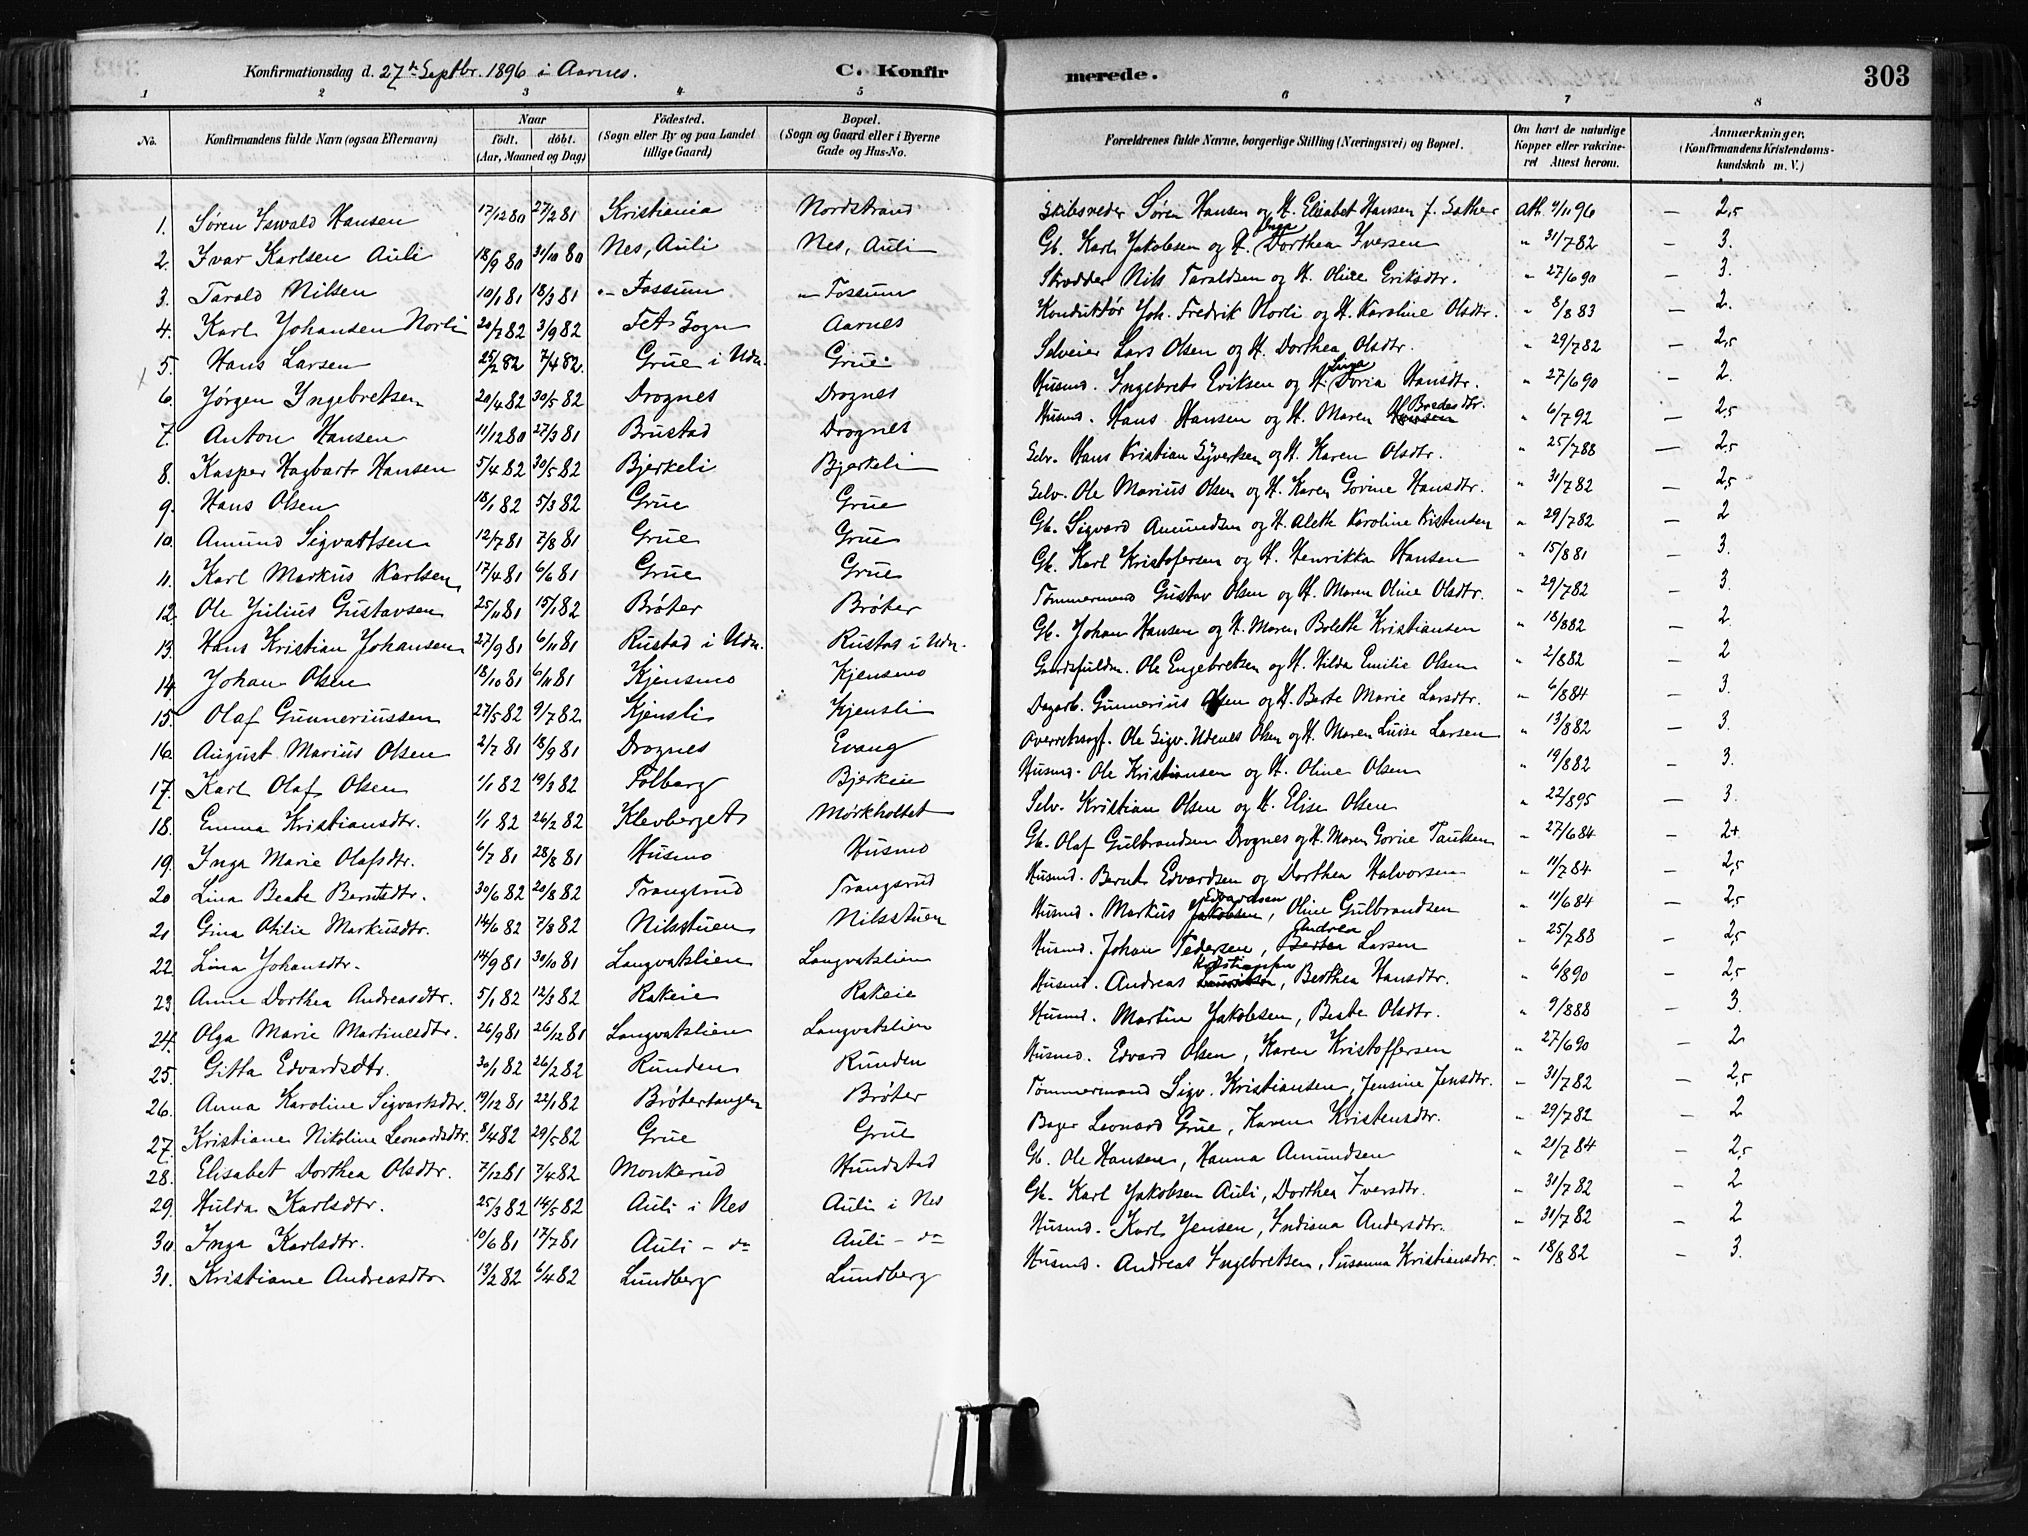 Konfirmationsdag d. 27de Septbr. 1896 i Aarnes. C. Konfirmerede. 303
1 2 3 4 5 6 7 8
No. Konfirmandens fulde Navn (ogsaa Efternavn) Naar født. døbt. (Aar, Maaned og Dag) Fødested. (Sogn eller By og paa Landet tillige Gaard) Bopæl. (Sogn og Gaard eller i Byerne Gade og Hus-No. Forældrenes fulde Navne, borgerlige Stilling (Næringsvei) og Bopæl. Om havt de naturlige Kopper eller vakcineret Attest herom. Anmærkninger. (Konfirmandens Kristendomskundskab m. V.)
1. Søren Iswald Hansen 17/12 80 27/2 81 Kristiania Nordstrand Skibsreder Søren Hansen og H. Elisabet Hansen f. Sather Att. 4/11 96 — 2,5
2. Ivar Karlsen Auli 18/9 80 31/10 80 Nes, Auli Nes, Auli Gb. Karl Jakobsen og H. Inga Dorthea Iversen " 31/7 82 — 3.
3. Tarald Nilsen 10/1 81 18/3 81 "– Fossum "– Fossum Skrædder Nils Taraldsen og H. Oline Eriksdtr. " 27/6 90 — 3.
4. Karl Johansen Norli 20/7 82 3/9 82 Fet Sogn Aarnes Konduktør Joh. Fredrik Norli og H. Karoline Olsdtr. " 8/8 83 — 2.
5. Hans Larsen 25/2 82 7/4 82. Grue i Udn. Grue. Selveier Lars Olsen og H. Dorthea Olsdtr. " 29/7 82 — 2,5
6. Jørgen Ingebretsen 20/4 82 30/5 82 Drognes Drognes Husmd. Ingebret Eriksen og H. Inga Doria Hansdtr. " 27/6 90 — 2.
7. Anton Hansen 11/12 80 27/3 81 Brustad Drognes Husmd. Hans Hansen og H. Maren Bredesdtr. " 6/7 92 — 2,5
8. Kasper Hagbart Hansen 5/4 82 30/5 82 Bjerkeli Bjerkeli Selv. Hans Kristian Syvertsen og H. Karen Olsdtr. " 25/7 88 — 2,5
9. Hans Olsen 18/1 82 5/3 82 Grue Grue Selv. Ole Marius Olsen og H. Karen Gorine Hansdtr. " 31/7 82 — 2,5
10. Amund Sigvartsen 12/7 81 7/8 81 Grue Grue Gb. Sigvard Amundsen og H. Alette Karoline Kristensen " 29/7 82 — 2
11. Karl Markus Karlsen 17/4 81 6/6 81 Grue Grue Gb. Karl Kristofersen og H. Henrikka Hansen " 15/8 81 — 3.
12. Ole Julius Gustavsen 25/11 81 15/1 82 Brøter Brøter Tømmermand Gustav Olsen og H. Maren Oline Olsdtr. " 29/7 82 — 3.
13. Hans Kristian Johansen 27/9 81 6/11 81 Rustad i Udn. Rustad i Udn. Gb. Johan Hansen og H. Maren Bolette Kristiansen " 18/8 82 — 2.
14. Johan Olsen 18/10 81 6/11 81 Kjensmo Kjensmo Gaardsfuldm. Ole Engebretsen og H. Hilda Emilie Olsen " 2/8 82 — 2
15. Olaf Gunneriussen 27/5 82 9/7 82. Kjensli Kjensli Dagarb. Gunnerius Olsen og H. Berte Marie Larsdtr. " 6/8 84 — 3.
16. August Marius Olsen 2/7 81 18/9 81 Drognes Evang Overretssagf. Ole Sigv. Udenes Olsen og H. Maren Luise Larsen " 13/8 82 — 3.
17. Karl Olaf Olsen 1/1 82 19/3 82 Folberg Bjerkeie Husmd. Ole Kristiansen og H. Oline Olsen " 19/8 82 — 3.
18. Emma Kristiansdtr. 1/1 82 26/2 82 Klevberget Mørkholtet Selv. Kristian Olsen og H. Elise Olsen " 22/8 95 — 3.
19. Inga Marie Olafsdtr. 6/7 81 28/8 81 Husmo Husmo Gb. Olaf Gulbrandsen Drognes og H. Maren Gorine Paulsen " 27/6 84 — 2+
20. Lina Beate Berntsdtr. 30/6 82 20/8 82 Trangsrud Trangsrud Husmd. Bernt Edvardsen og Dorthea Halvorsen " 11/7 84 — 2,5
21. Gina Otilie Markusdtr. 14/6 82 7/8 82 Nilsstuen Nilsstuen Husmd. Markus Jakobsen Edvardsen, Oline Gulbrandsen " 11/6 84 — 2,5
22. Lina Johansdtr. 14/9 81 30/10 81 Langvakslien Langvakslien Husmd. Johan Pedersen, Bertea Andrea Larsen " 25/7 88 — 2,5
23. Anne Dorthea Andreasdtr. 5/1 82 12/3 82 Rakeie Rakeie Husmd. Andreas Kristiansen, Berthea Hansdtr. " 6/8 90 — 2,5
24. Olga Marie Martinesdtr. 26/9 81 26/12 81 Langvakslien Langvakslien Husmd. Martin Jakobsen, Beate Olsdtr. " 9/8 88 — 3.
25. Gitta Edvardsdtr. 30/1 82 26/2 82 Runden Runden Husmd. Edvard Olsen, Karen Kristoffersen " 27/6 90 — 2
26. Anna Karoline Sigvartsdtr. 19/12 81 22/1 82 Brøtertangen Brøter Tømmermand Sigv. Kristiansen, Jensine Jensdtr. " 31/7 82 — 2,5
27. Kristiane Nikoline Leonardsdtr. 8/4 82 29/5 82 Grue Grue Bager Leonard Grue, Karen Kristensdtr. " 29/7 82 — 2
28. Elisabet Dorthea Olsdtr. 7/12 81 7/4 82 Monkerud Hundstad Gb. Ole Hansen, Hanna Amundsen " 21/7 84 — 2,5
29. Hulda Karlsdtr. 25/3 82 14/5 82 Auli i Nes Auli i Nes Gb. Karl Jakobsen Auli, Dorthea Iversdtr. " 31/7 82 — 2
30. Inga Karlsdtr. 10/6 81 17/7 81 Auli – do Auli – do Husmd. Karl Jensen, Indiana Andersdtr. " 31/7 82 — 2
31. Kristiane Andreasdtr 13/2 82 6/4 82 Lundberg Lundberg Husmd. Andreas Ingebretsen, Susanna Kristiansdtr. " 18/8 82 — 3.